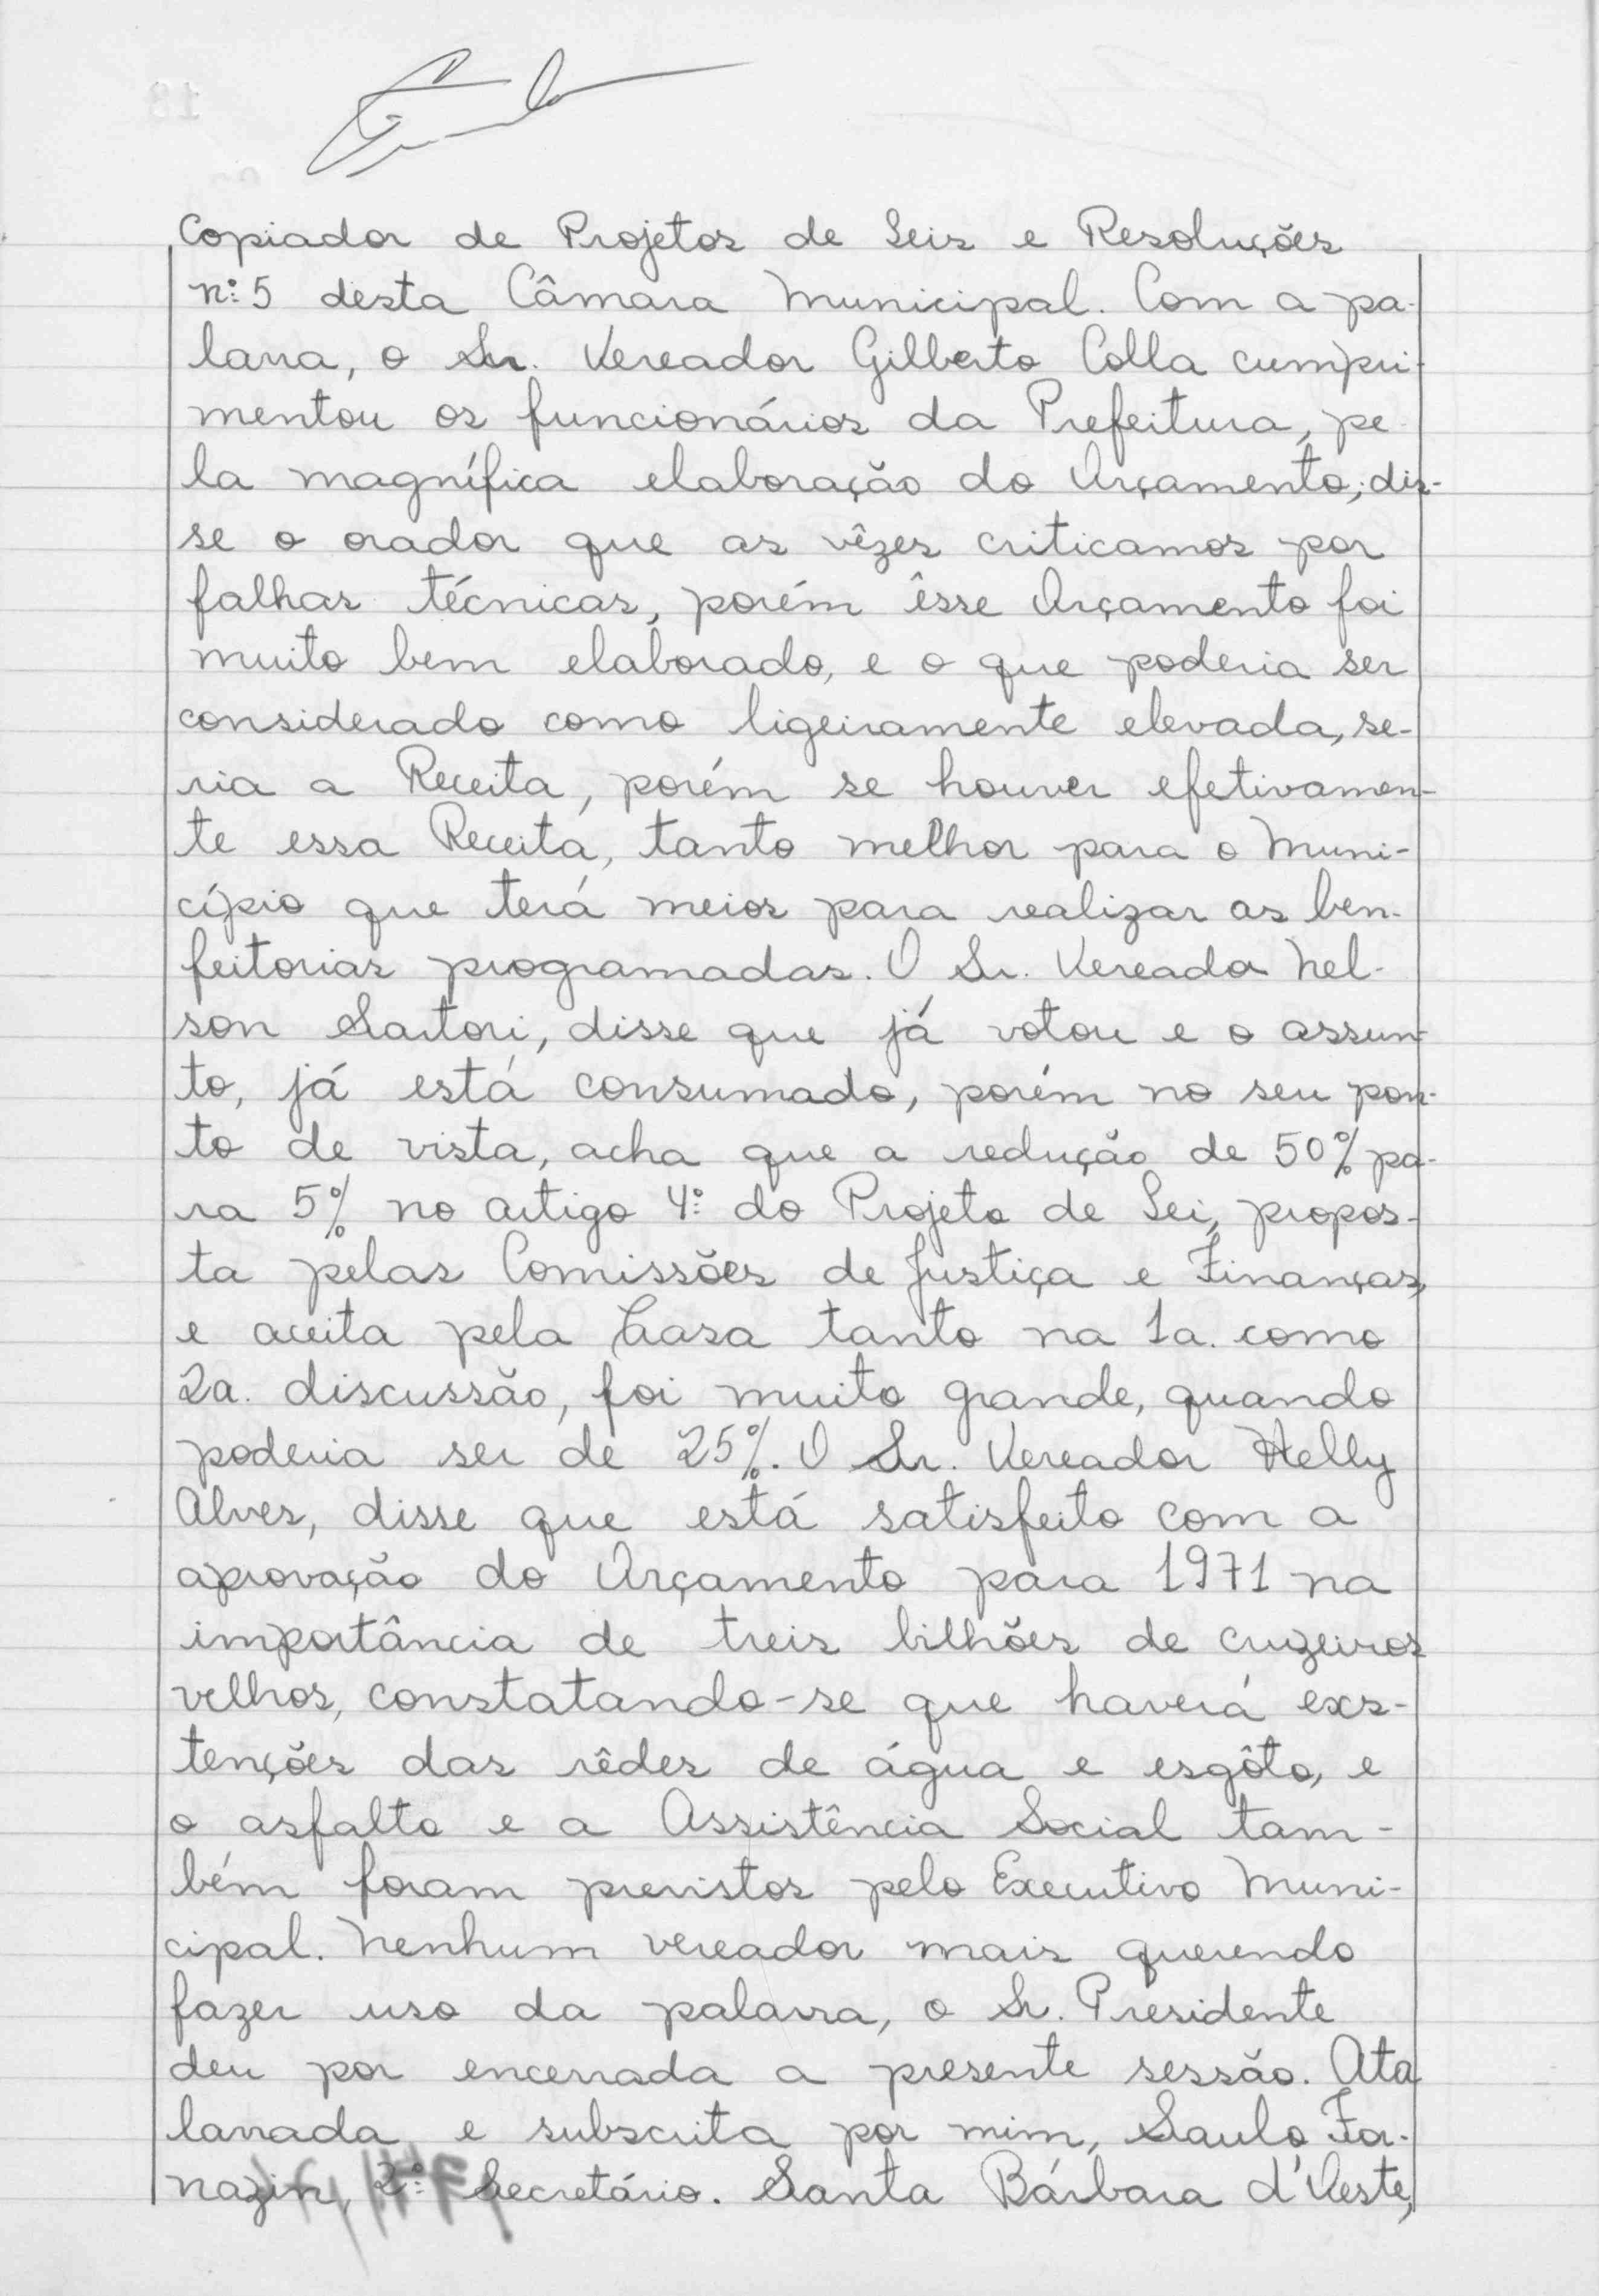 Copiador de Projetos de Leis e Resoluções
nº 5 desta Câmara Municipal. Com a pa-
lavra, o Sr. Vereador Gilberto Colla cumpri-
mentou os funcionários da Prefeitura, pe
la magnífica elaboração do Orçamento; dis-
se o orador que as vêzes criticamos por
falhas técnicas, porém êsse Orçamento foi
muito bem elaborado, e o que poderia ser
considerado como ligeiramente elevada, se-
ria a Receita, porém se houver efetivamen-
te essa Receita, tanto melhor para o Muni-
cípio que terá meios para realizar as ben-
feitorias programadas. O Sr. Vereador Nel-
son Sartori, disse que já votou e o assun-
to, já está consumado, porém no seu pon-
to de vista, acha que a redução de 50% pa-
ra 5% no artigo 4º do Projeto de Lei, propos-
ta pelas Comissões de Justiça e Finanças,
e aceita pela Casa tanto na 1a. como
2a. discussão, foi muito grande, quando
poderia ser de 25%. O Sr. Vereador Helly
Alves, disse que está satisfeito com a
aprovação do Orçamento para 1971 na
importância de treis bilhões de cruzeiros
velhos, constatando-se que haverá exs-
tenções das rêdes de água e esgôto, e
o asfalto e a Assistência Social tam-
bém foram previstos pelo Executivo Muni-
cipal. Nenhum vereador mais querendo
fazer uso da palavra, o Sr. Presidente
deu por encerrada a presente sessão. Ata
lavrada e subscrita por mim, Saulo For-
nazin, 2º Secretário. Santa Bárbara d'Oeste,